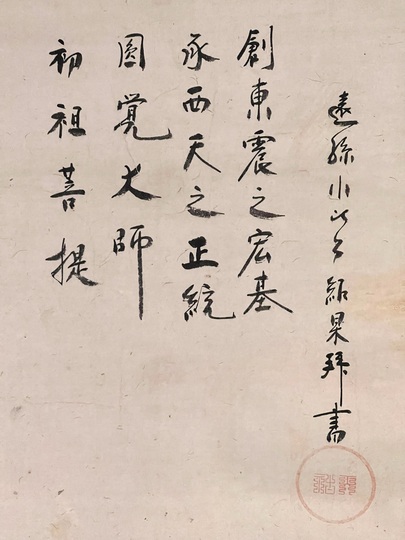 初祖菩提
圓覚大師
承西天之正統
創東震之宏基
遠孫小比丘紹杲拜書